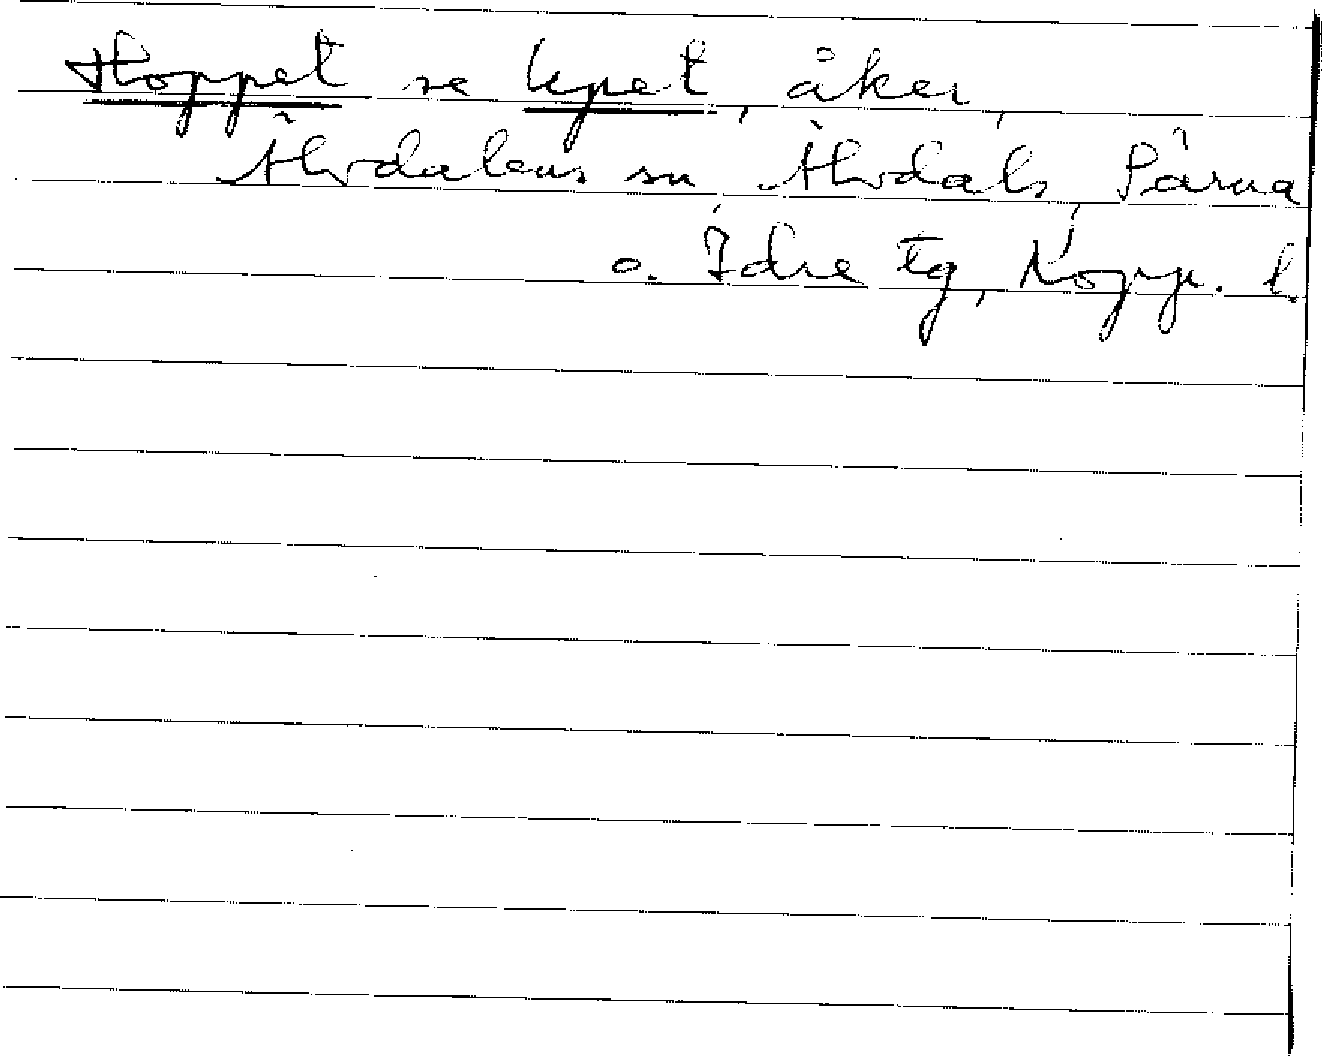 Hoppet se Upet, åker,
Älvdalens sn, Älvdals, Särna
o. Idre tg, Kopp. l.